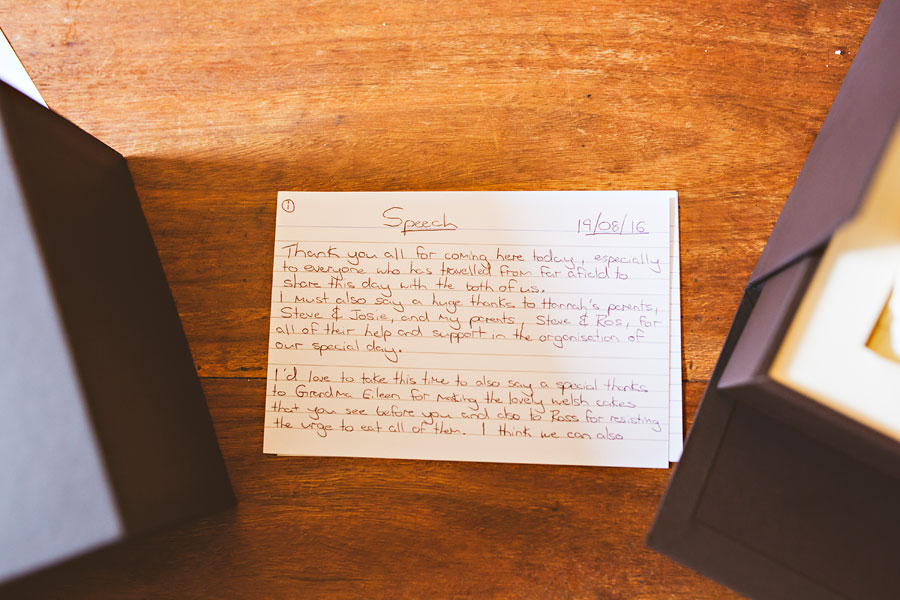 ① Speech 19/08/16
Thank you all for coming here today, especially
to everyone who has travelled from far afield to
share this day with the both of us.
I must also say a huge thanks to Hannah's parents,
Steve & Josie, and my parents, Steve & Ros, for
all of their help and support in the organisation of
our special day.
I'd love to take this time to also say a special thanks
to Grandma Eileen for making the lovely welsh cakes
that you see before you and also to Ross for resisting
the urge to eat all of them. I think we can also